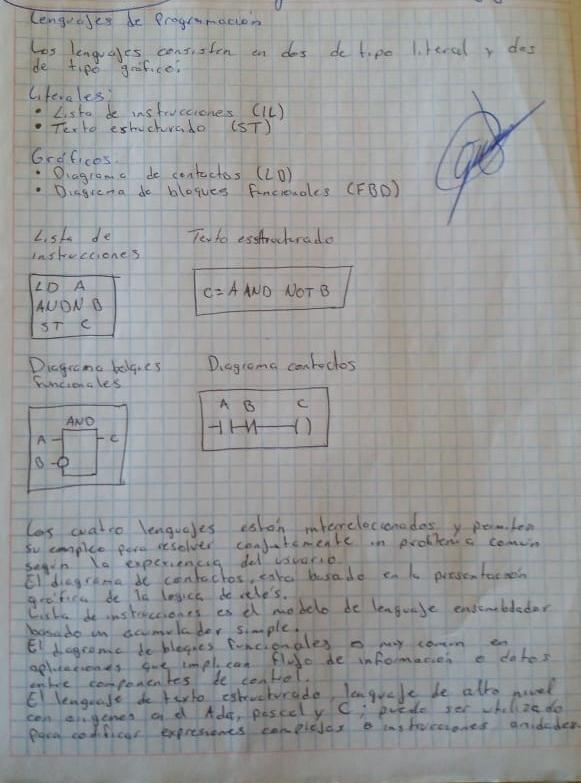 Lenguajes de Programación
Los lenguajes consisten en dos de tipo literal y dos
de tipo gráfico.
Literales:
• Lista de instrucciones (IL)
• Texto estructurado (ST)
Gráficos.
• Diagrama de contactos (LD)
• Diagrama de bloques funcionales (FBD)
Lista de
instrucciones
LD A
ANDN B
ST C
Texto esstructurado
C= A AND NOT B
Diagrama bolques
funcionales
AND
A
C
B
Diagrama contactos
A B C
Los cuatro lenguajes están interrelacionados y permiten
su empleo para resolver conjutamente un problema común
según la experiencia del usuario.
El diagrama de contactos, esta basado en la presentación
gráfica de la lógica de relés.
Lista de instrucciones es el modelo de lenguaje ensamblador
basado un acumulador simple.
El diagrama de bloques funcionales o muy común en
aplicaciones que implican flujo de información o datos
entre componentes de control.
El lenguaje de texto estructurado, lenguaje de alto nivel
con origenes en el Ada, pascal y C; puede ser utilizado
para codificar expresiones complejas e instrucciones anidadas